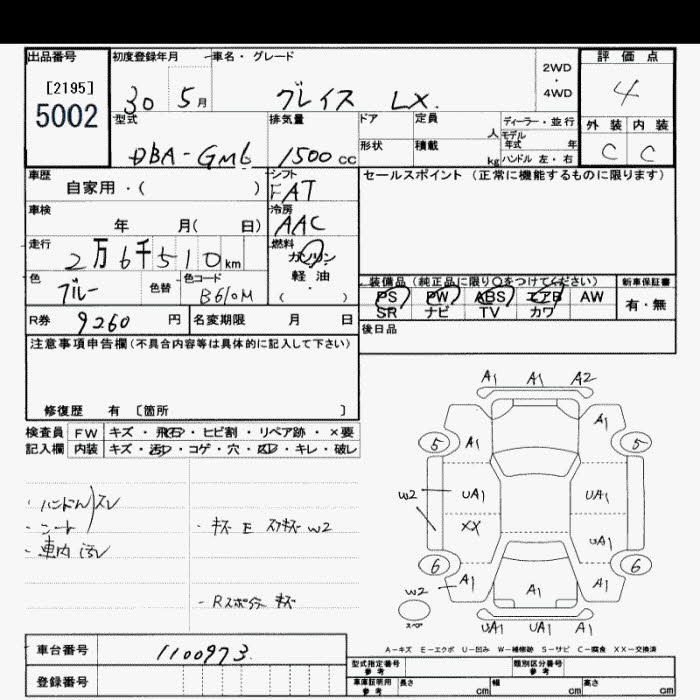 出品番号 初度登録年月 車名・グレード 2WD・4WD 評価点
[2195] 5002 30 5月 グレイス LX. 4
型式 排気量 ドア 定員 人 ディーラー・並行 外装 内装
DBA-GM6 1500cc 形状 積載 kg モデル年式 年 ハンドル 左・右 C C
車歴 シフト セールスポイント (正常に機能するものに限ります)
自家用・( ) FAT
車検 冷房
年 月( 日) AAC
走行 燃料
2万6千510km ガソリン
軽油
( )
色 色替 色コード 装備品 (純正品に限り○をつけてください) 新車保証書
ブルー B610M PS PW ABS エアB AW 有・無
SR ナビ TV カワ
R券 9260 円 名変期限 月 日 後日品
注意事項申告欄(不具合内容等は具体的に記入して下さい)
修復歴 有 〔箇所 〕
検査員 FW キズ・飛石・ヒビ割・リペア跡・×要
記入欄 内装 キズ・汚れ・コゲ・穴・・キレ・破レ
・ハンドルスレ
・シート
・車内汚レ
・キズ E スリキズ W2
・Rスポイラー キズ
A1 A1 A2
5 A1 A1 5
W2 UA1 UA1
XX UA1
6 A1 A1 A1 6
W2
スペア
UA1 UA1 A1
A-キズ E-エクボ U-凹み W-補修跡 S-サビ C-腐食 XX-交換済
車台番号 1100973
型式指定番号 参考 類別区分番号 参考
登録番号
車庫証明用 参考 長さ cm 幅 cm 高さ cm